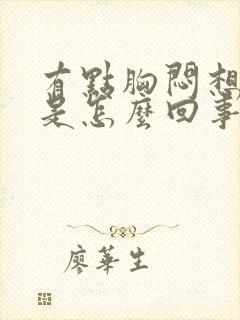 有點胸悶想
是怎麼回事
廖華生